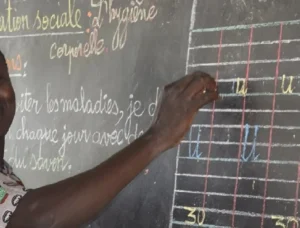 ation sociale : L'hygiène
corporelle
iter les maladies, je d
chaque jour avec de
savon.
u
u u u
30 30